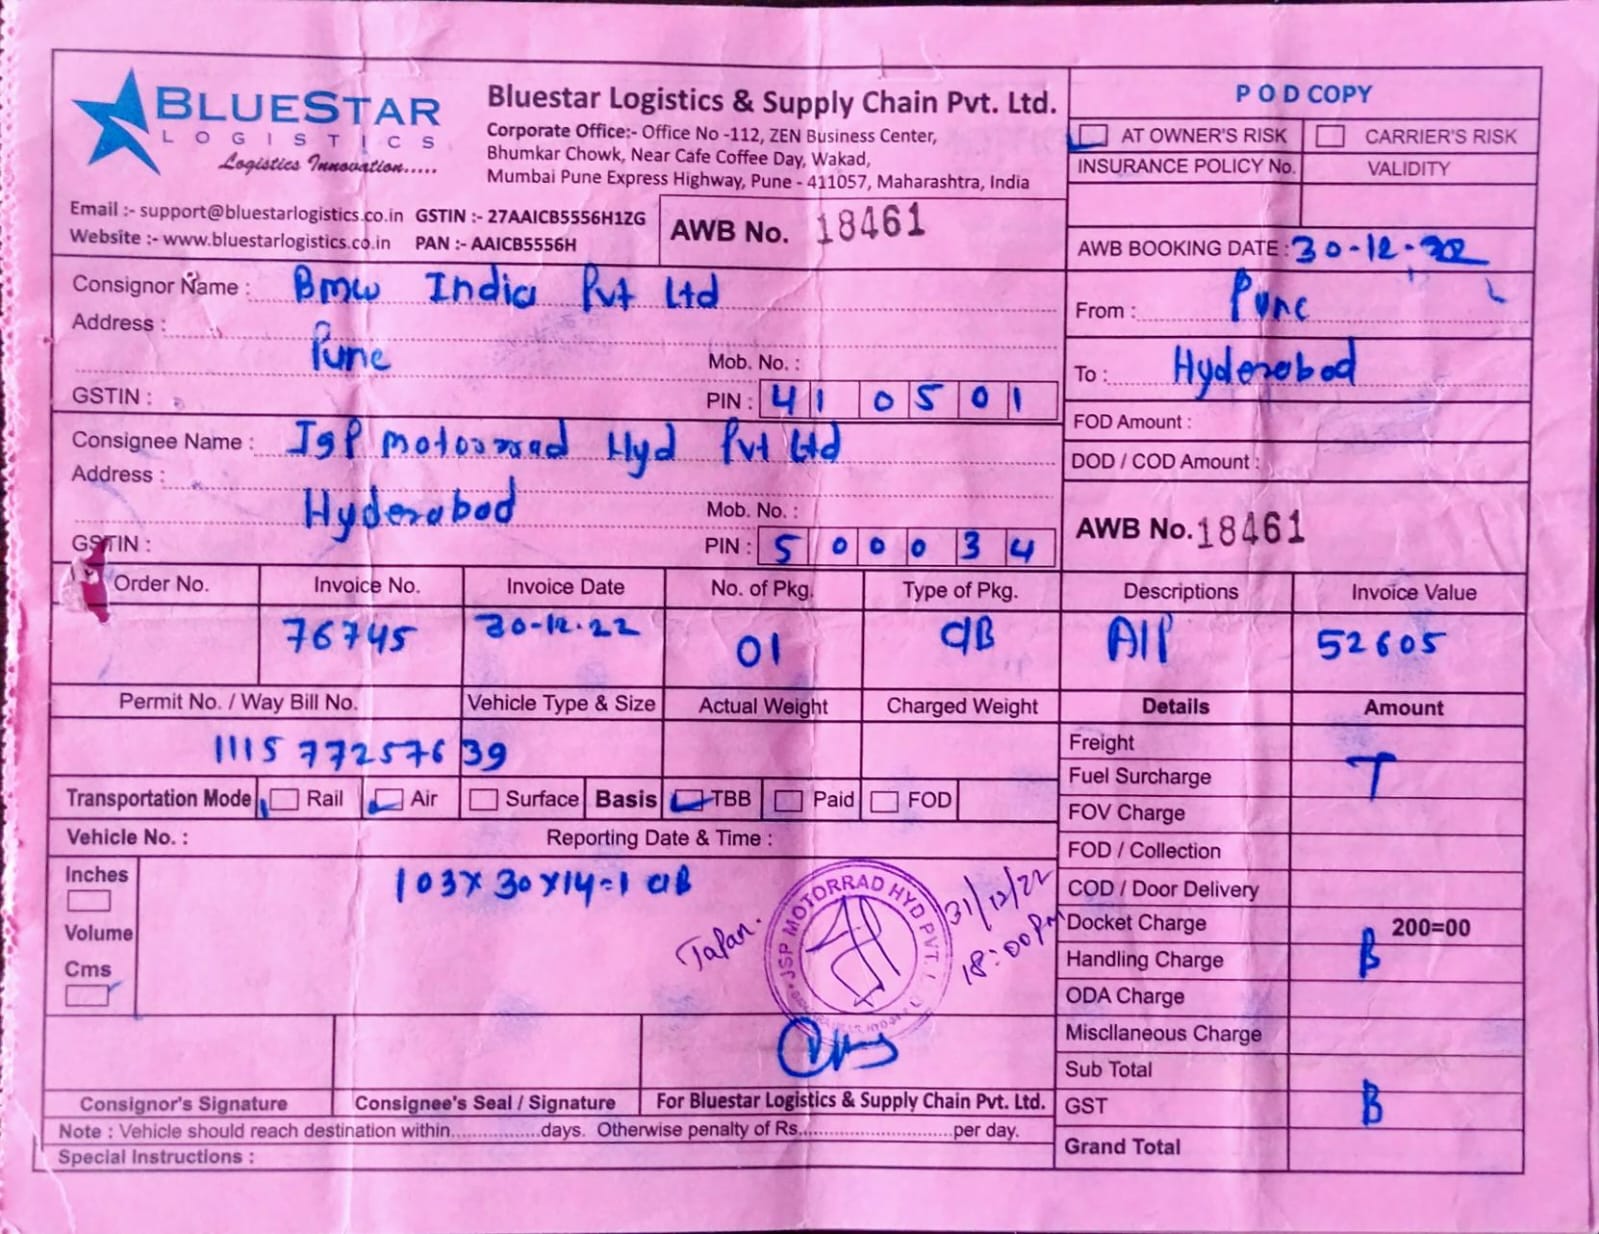 BLUESTAR
LOGISTICS
Logistics Innovation.....
Bluestar Logistics & Supply Chain Pvt. Ltd.
Corporate Office:- Office No -112, ZEN Business Center,
Bhumkar Chowk, Near Cafe Coffee Day, Wakad,
Mumbai Pune Express Highway, Pune - 411057, Maharashtra, India
Email :- support@bluestarlogistics.co.in GSTIN :- 27AAICB5556H1ZG
Website :- www.bluestarlogistics.co.in PAN :- AAICB5556H
AWB No. 18461
POD COPY
AT OWNER'S RISK CARRIER'S RISK
INSURANCE POLICY No. VALIDITY
AWB BOOKING DATE : 30-12-22
From : Pune
To : Hyderabad
FOD Amount :
DOD / COD Amount :
AWB No. 18461
Consignor Name : Bmw India Pvt Ltd
Address :
Pune Mob. No. :
GSTIN : PIN : 410501
Consignee Name : JSP motorrad Hyd Pvt Ltd
Address :
Hyderabad Mob. No. :
GSTIN : PIN : 500034
Order No. Invoice No. Invoice Date No. of Pkg. Type of Pkg. Descriptions Invoice Value
76745 30-12-22 01 CB A/P 52605
Permit No. / Way Bill No. Vehicle Type & Size Actual Weight Charged Weight Details Amount
1115 77257639
Transportation Mode Rail Air Surface Basis TBB Paid FOD
Vehicle No. : Reporting Date & Time :
Inches
Volume
Cms
103x30x14=1 CB
Tapan.
JSP MOTORRAD HYD PVT.
31/12/22
18:00pm
Freight
Fuel Surcharge T
FOV Charge
FOD / Collection
COD / Door Delivery
Docket Charge 200=00
Handling Charge B
ODA Charge
Miscllaneous Charge
Sub Total
GST B
Grand Total
Consignor's Signature Consignee's Seal / Signature For Bluestar Logistics & Supply Chain Pvt. Ltd.
Note : Vehicle should reach destination within..................days. Otherwise penalty of Rs..............................per day.
Special Instructions :